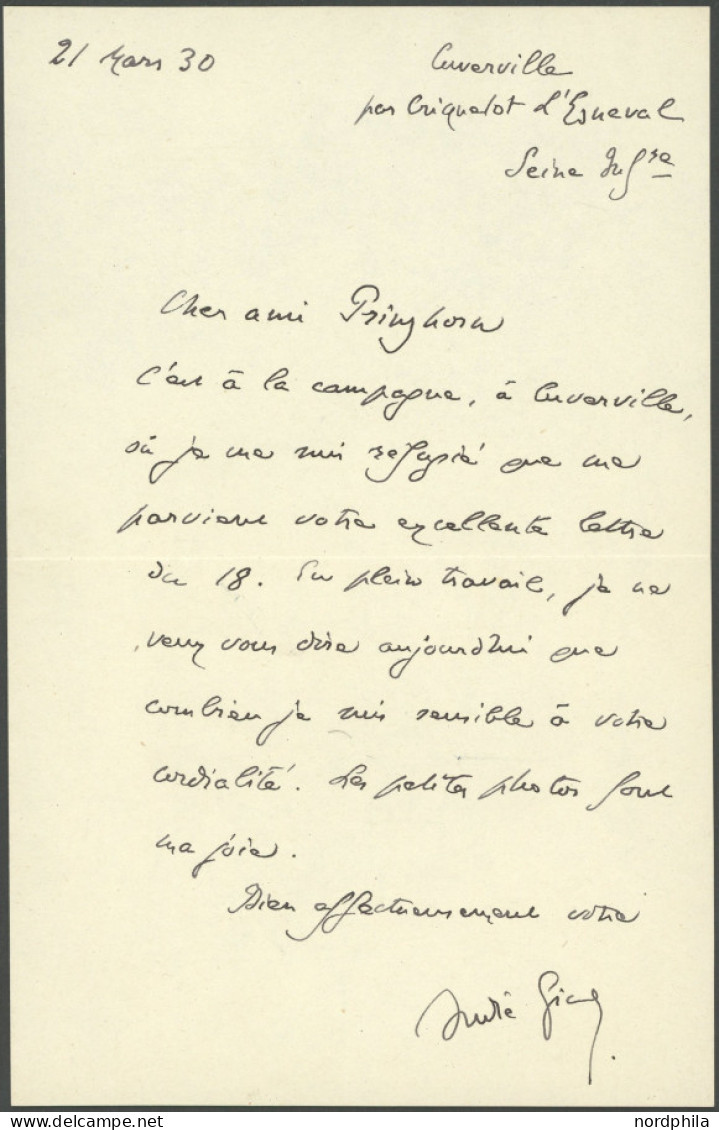 21 Mars 30
Cuverville
par Criquetot L'Esneval
Seine Infre
Cher ami Prinzhorn
C'est à la campagne, à Cuverville,
où je me suis réfugié que me
parvient votre excellente lettre
du 18. En plein travail, je ne
veux vous dire aujourd'hui que
combien je suis sensible à votre
cordialité. Les petites photos font
ma joie.
Bien affectueusement votre
André Gide
nordphila